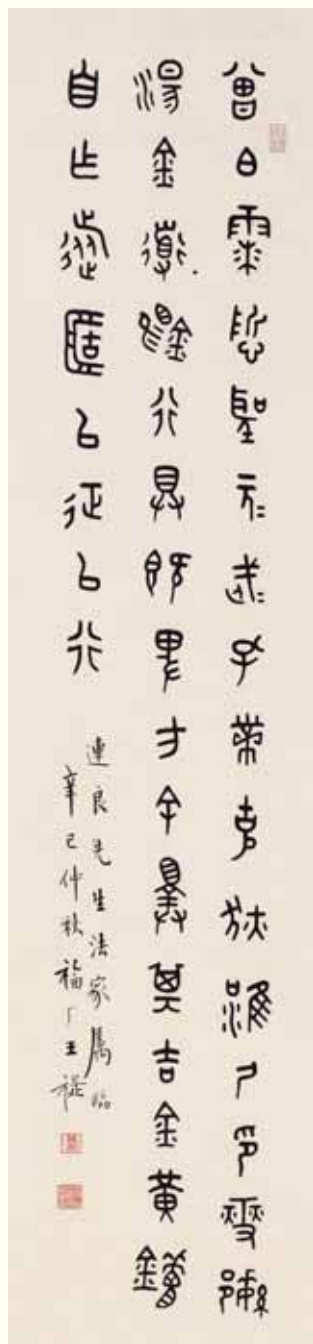 曾白霥悊聖元=武=孔黹克狄淮尸印燮繁
湯金道錫行具既卑方余擇其吉金黃鑪
自乍旅匿以征以行
連良先生法家屬臨
辛巳仲秋福厂王禔